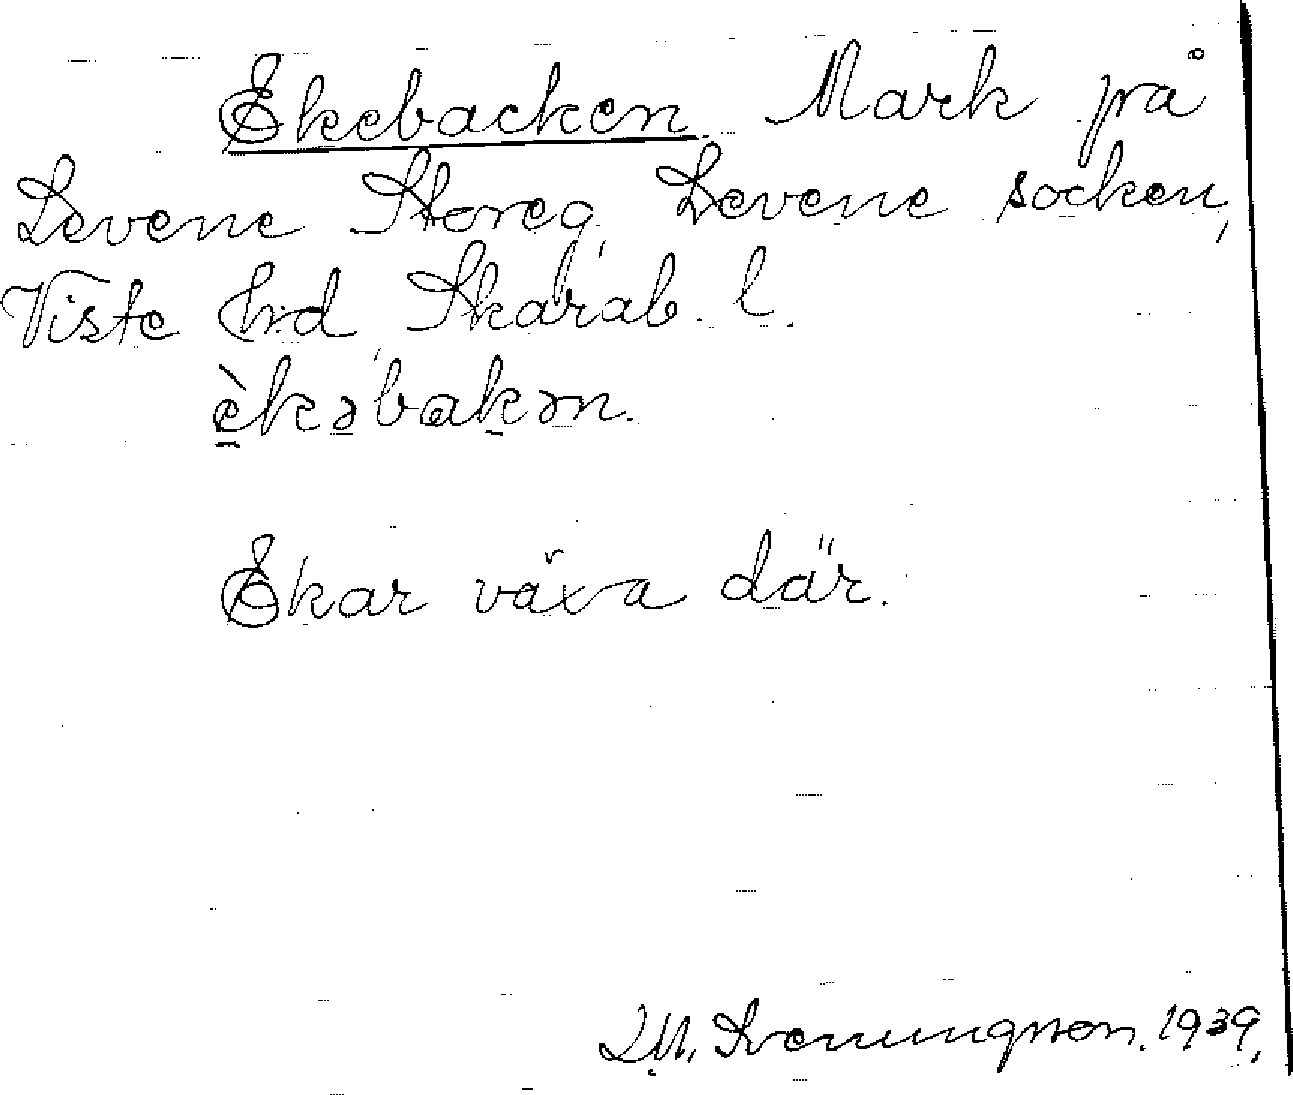 Ekebacken Mark på
Levene Storeg, Levene socken,
Viste hrd, Skarab. l.
èkəbakən.
Ekar växa där.
Svenungsson. 1939.